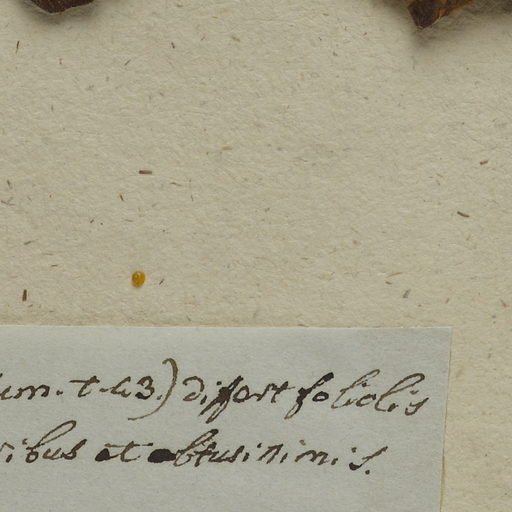 um. t. 43.) differt foliolis
ribus et obtusissimis.